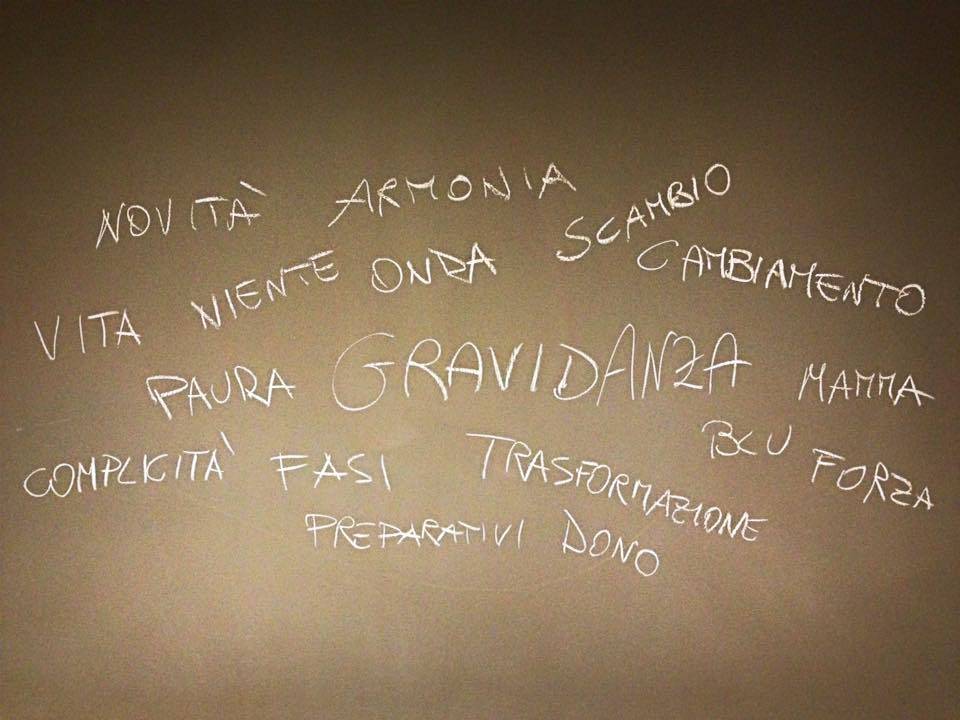 NOVITÀ ARMONIA SCAMBIO
VITA NIENTE ONDA CAMBIAMENTO
PAURA GRAVIDANZA MAMMA
COMPLICITÀ FASI TRASFORMAZIONE BLU FORZA
PREPARATIVI DONO